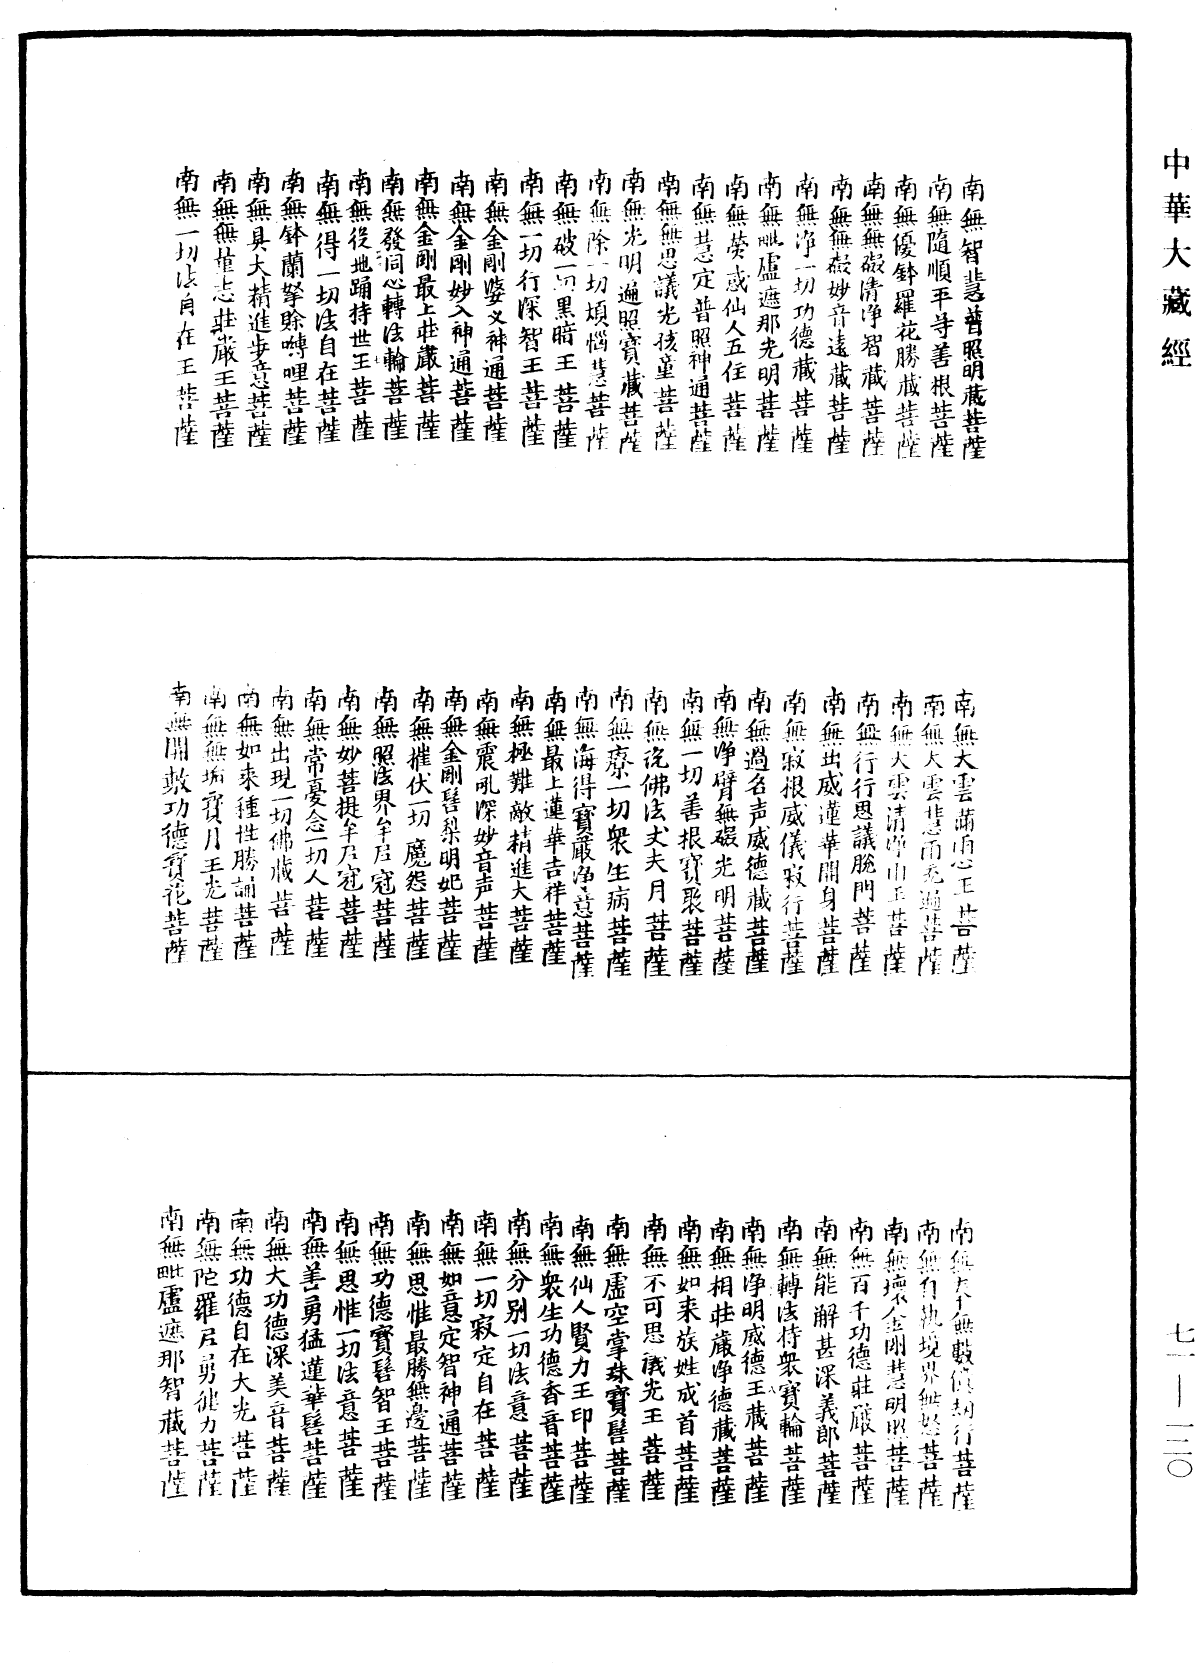 中華大藏經
南無智慧普照明藏菩薩
南無隨順平等善根菩薩
南無優鉢羅花勝藏菩薩
南無無礙清淨智藏菩薩
南無無礙妙音遠藏菩薩
南無淨一切功德藏菩薩
南無毗盧遮那光明菩薩
南無熒惑仙人五住菩薩
南無慧定普照神通菩薩
南無無思議光孩童菩薩
南無光明遍照寶藏菩薩
南無除一切煩惱慧菩薩
南無破一切黑暗王菩薩
南無一切行深智王菩薩
南無金剛婆义神通菩薩
南無金剛妙入神通菩薩
南無金剛最上莊嚴菩薩
南無發同心轉法輪菩薩
南無從地踊持世王菩薩
南無得一切法自在菩薩
南無鉢蘭拏賒嚩哩菩薩
南無具大精進步意菩薩
南無無量志莊嚴王菩薩
南無一切法自在王菩薩
南無大雲滿忠王菩薩
南無大雲慧雨充遍菩薩
南無大雲清淨山王菩薩
南無行行思議脫門菩薩
南無出威蓮華開身菩薩
南無寂根威儀寂行菩薩
南無過名声威德藏菩薩
南無淨臂無礙光明菩薩
南無一切善根寶聚菩薩
南無說佛法丈夫月菩薩
南無療一切衆生病菩薩
南無海得寶嚴淨意菩薩
南無最上蓮華吉祥菩薩
南無極難敵精進大菩薩
南無震吼深妙音声菩薩
南無金剛髻梨明妃菩薩
南無摧伏一切魔怨菩薩
南無照法界牟尼冠菩薩
南無妙菩提牟尼冠菩薩
南無常憂念一切人菩薩
南無出現一切佛藏菩薩
南無如來種性勝誦菩薩
南無無垢寶月王光菩薩
南無開敷功德寶花菩薩
南無大千無數劫行菩薩
南無自執境界無怒菩薩
南無壞金剛慧明照菩薩
南無百千功德莊嚴菩薩
南無能解甚深義郎菩薩
南無轉法持衆寶輪菩薩
南無淨明威德王藏菩薩
南無相莊嚴淨德藏菩薩
南無如来族姓成首菩薩
南無不可思議光王菩薩
南無虛空掌珠寶髻菩薩
南無仙人賢力王印菩薩
南無衆生功德香音菩薩
南無分別一切法意菩薩
南無一切寂定自在菩薩
南無如意定智神通菩薩
南無思惟最勝無邊菩薩
南無功德寶髻智王菩薩
南無思惟一切法意菩薩
南無善勇猛蓮華髻菩薩
南無大功德深美音菩薩
南無功德自在大光菩薩
南無陀羅尼勇健力菩薩
南無毗盧遮那智藏菩薩
七一—一三〇